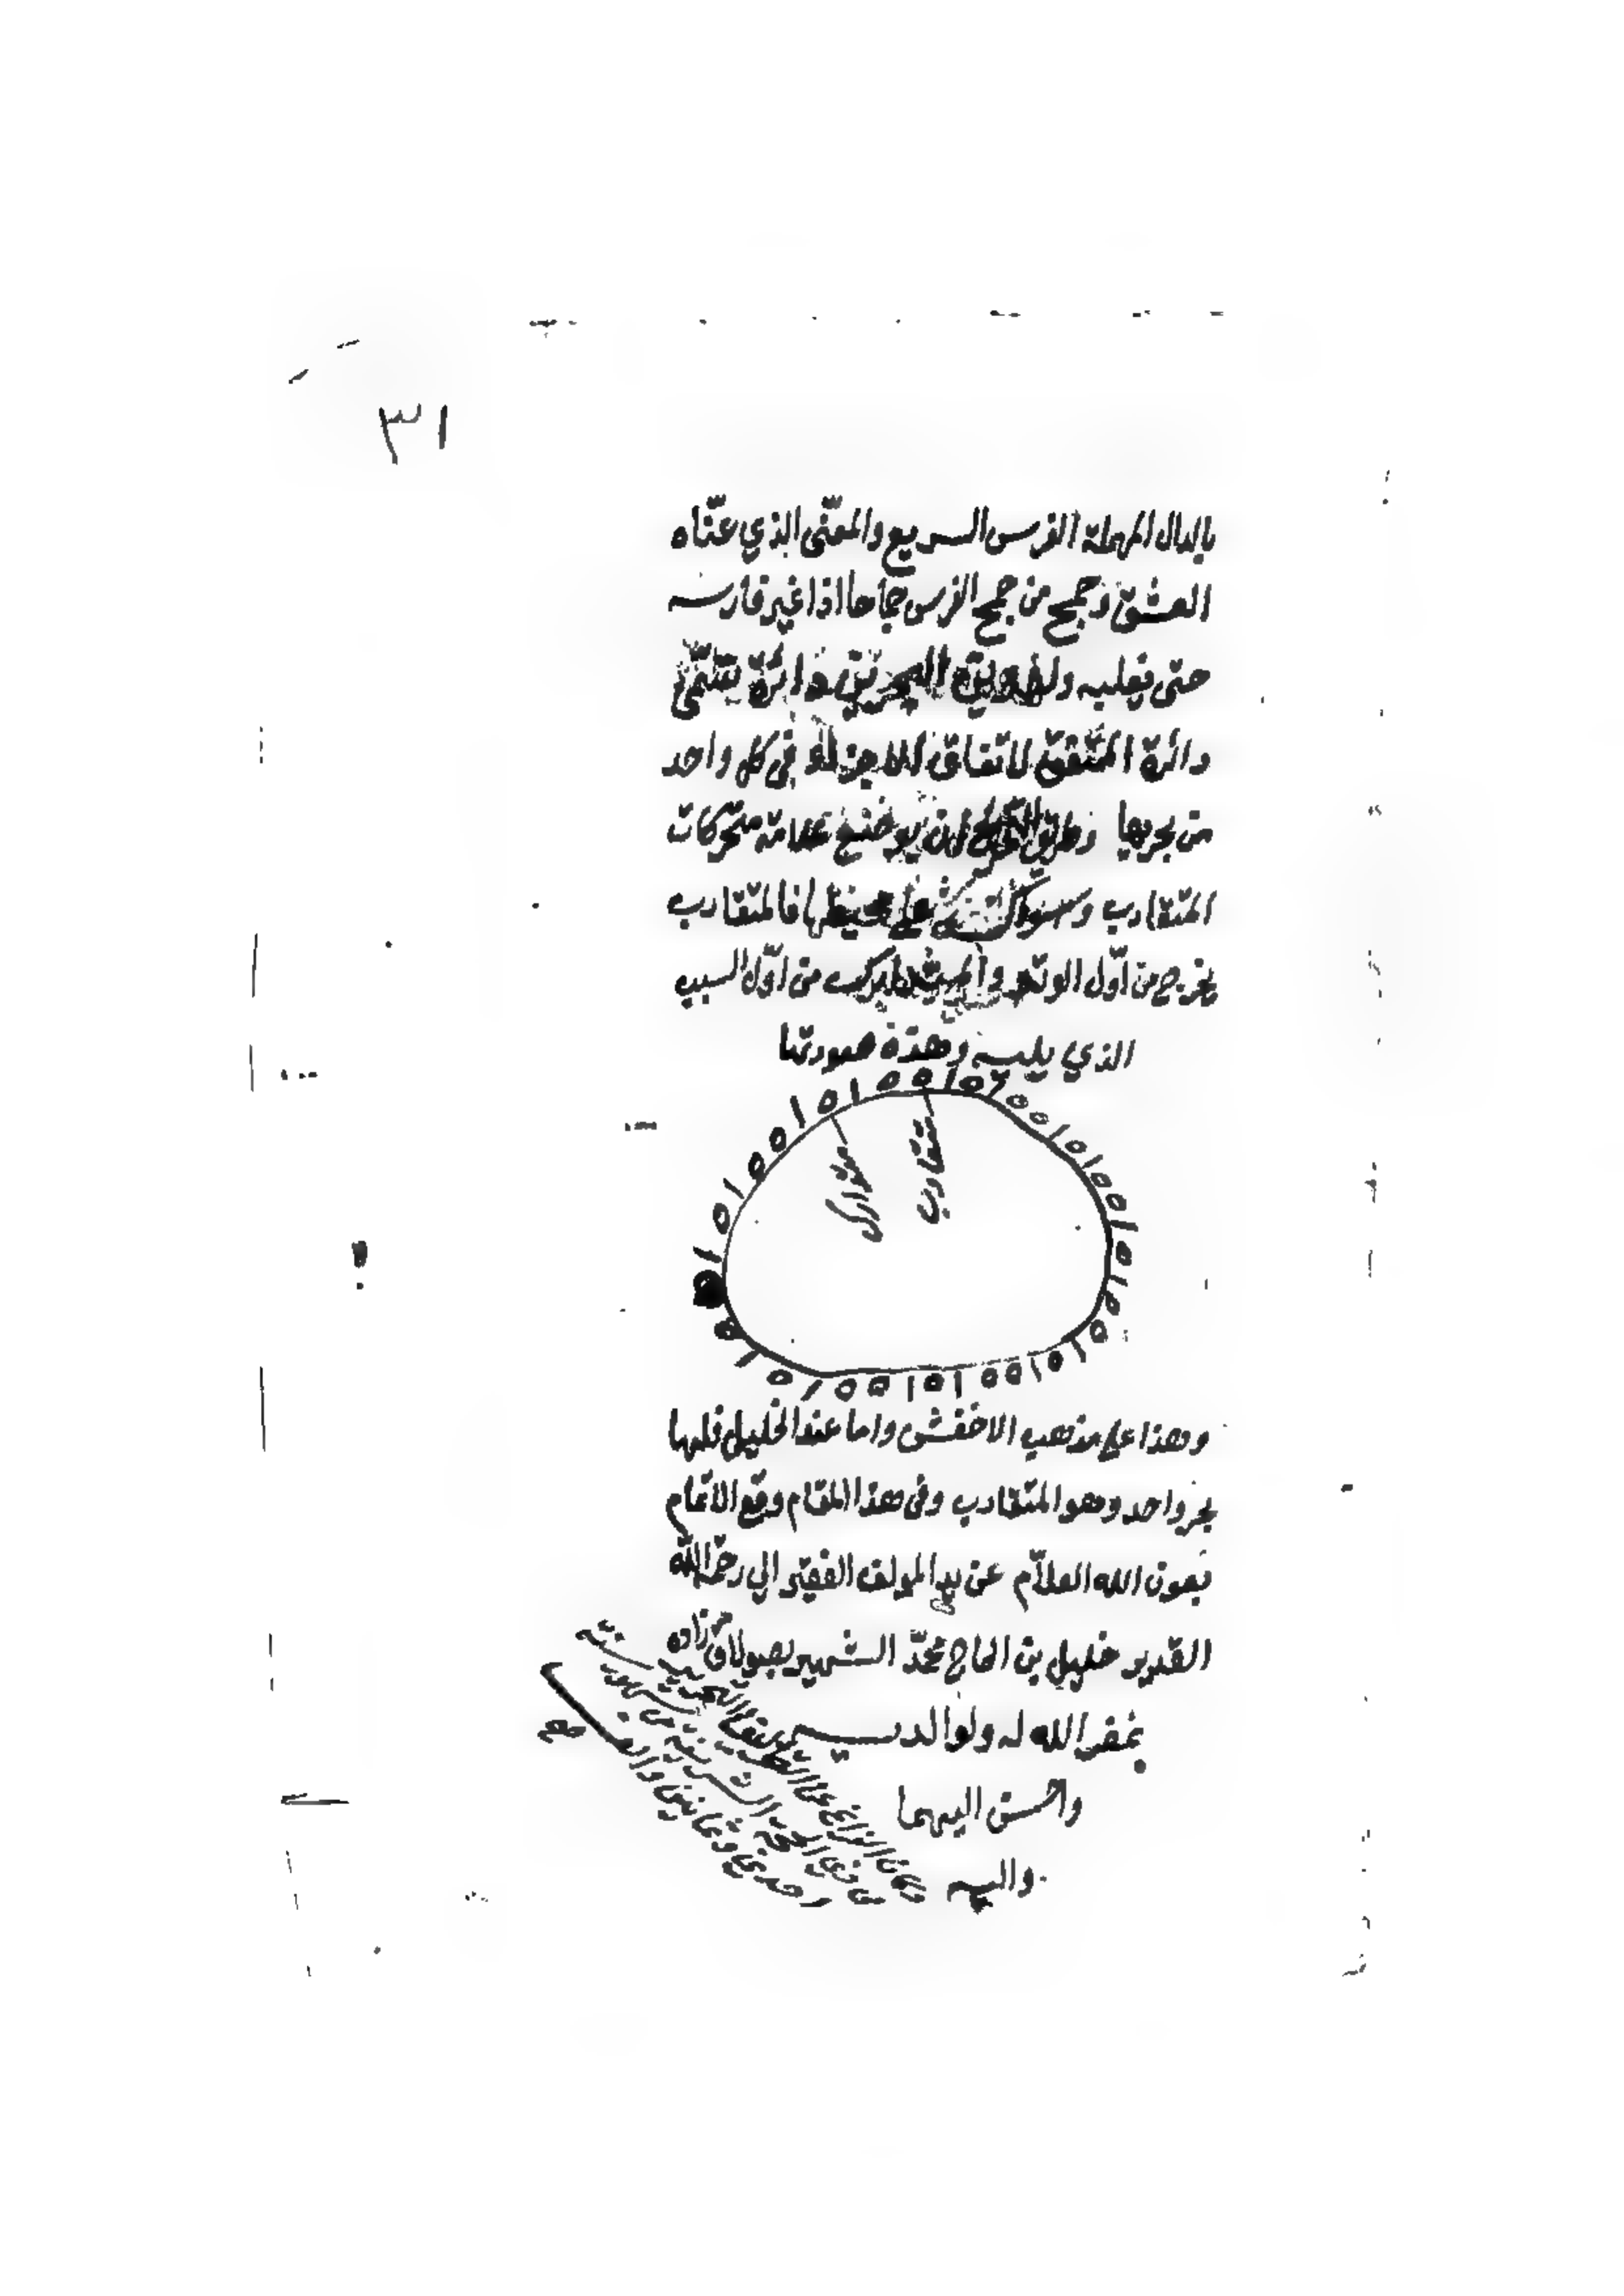 ٣١
بالدال المهملة الفرس السريع والمعنى الذي عناه
العشق وجمح من جمح الفرس جماحا اذا غير فارسه
حتى يغلبه ولهذين البحرين دائرة تسمى
دائرة المتفق لاتفاق الاجزاء في كل واحد
من بحريها وطريق ان يوضع علامة متحركات
المتقارب وسواكنه على محيطها فالمتقارب
يخرج من اول الوتد من اول السبب
الذي يليه وهذه صورتها
متقارب
متدارك
وهذا على مذهب الاخفش واما عند الخليل فلها
بحر واحد وهو المتقارب وفى هذا المقام وقع الاتمام
بعون الله العلام عن يد المولف الفقير الي رحمة الله
القدير خليل بن الحاج محمد الشهير بصولاق زاده
غفر الله له ولوالديه
واحسن اليهما
واليه